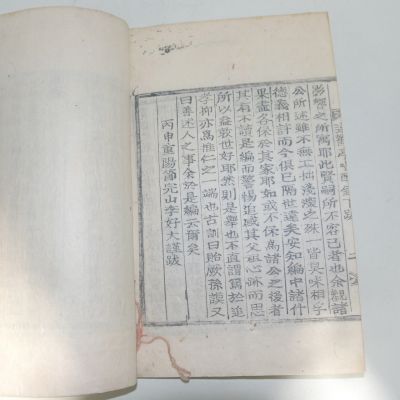 影響之所寓耶此賢嗣所不容已者也余觀諸
公所述雖不無工拙淺深之殊一皆臭味相孚
德義相許而今俱已隔世遠矣安知編中諸什
果盡各保於其家耶如或不保爲諸公之後者
其有不讀是編而警惕追感其父祖心跡而思
所以益敦世好耶然則是擧也不直謂篤於追
孝抑亦爲推仁之一端也古曰貽厥孫謨又
曰善述人之事余於是編云爾矣
丙申重陽節完山李好大謹跋